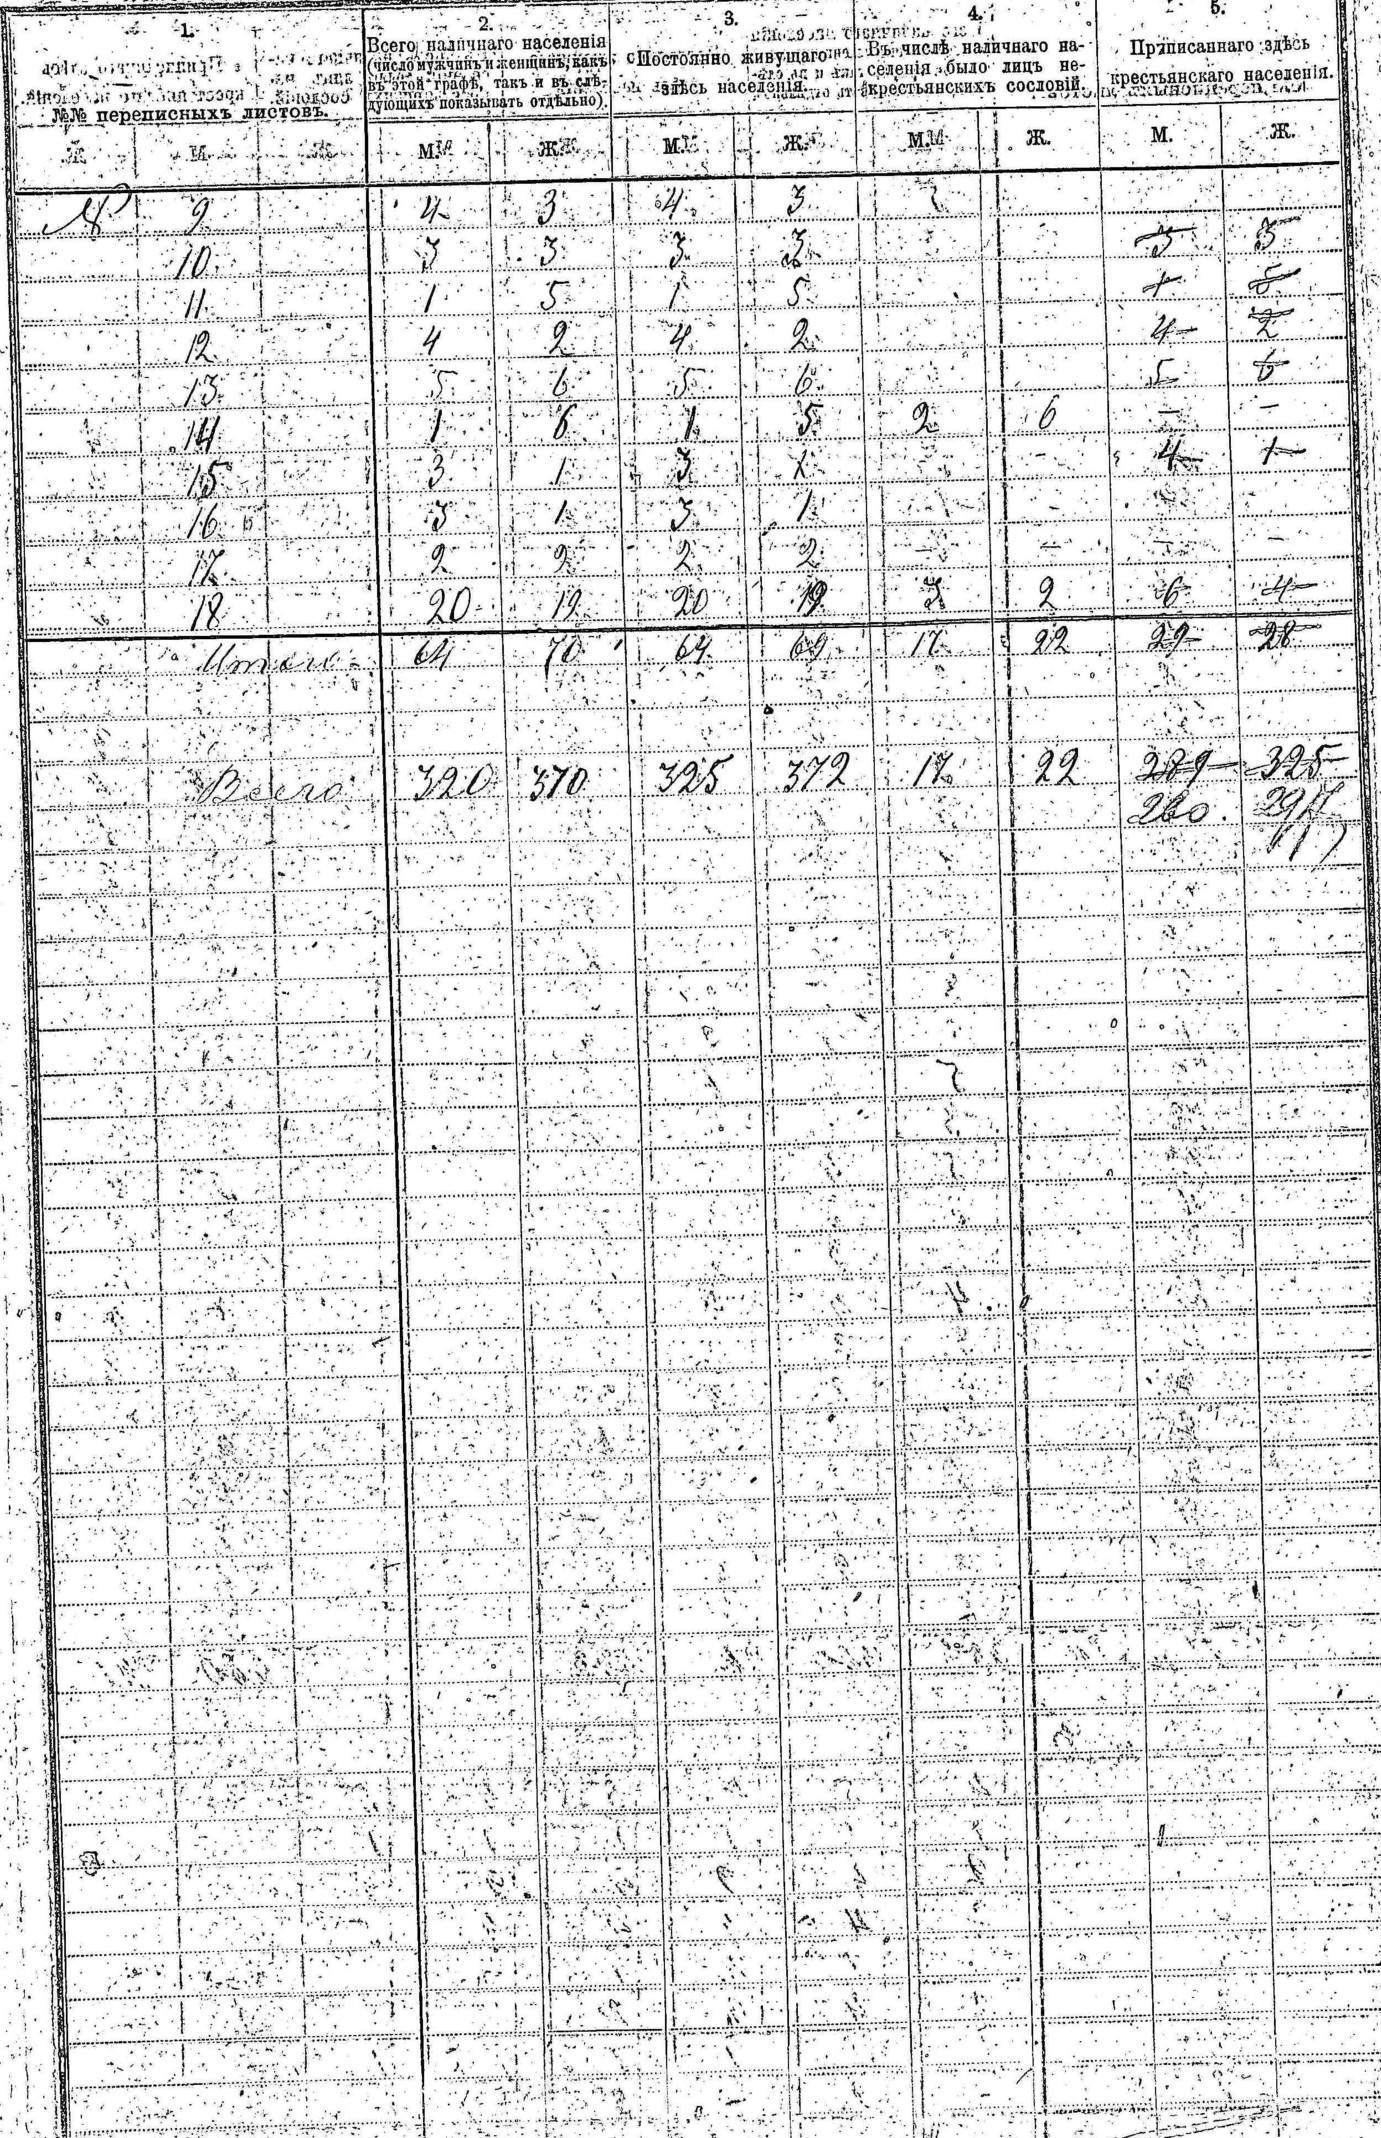 1. 2. 3. 4. 5.
№№ переписныхъ листовъ.
Всего наличнаго населенія
(число мужчинъ и женщинъ, какъ
въ этой графѣ, такъ и въ слѣ-
дующихъ показывать отдѣльно).
Постоянно живущаго
здѣсь населенія.
Въ числѣ наличнаго на-
селенія было лицъ не-
крестьянскихъ сословій.
Приписаннаго здѣсь
крестьянскаго населенія.
М. Ж. М. Ж. М. Ж. М. Ж.
№ 9 4 3 4 3
10 3 3 3 3 3 3
11 1 5 1 5 1 5
12 4 2 4 2 4 2
13 5 6 5 6 5 6
14 1 6 1 5 2 6 - -
15 3 1 3 1 - - 4 1
16 3 1 3 1 - -
17 2 2 2 2 - - - -
18 20 19 20 19 3 2 6 4
Итого 64 70 64 69 17 22 29 28
Всего 320 370 325 372 17 22 289 325
260. 297